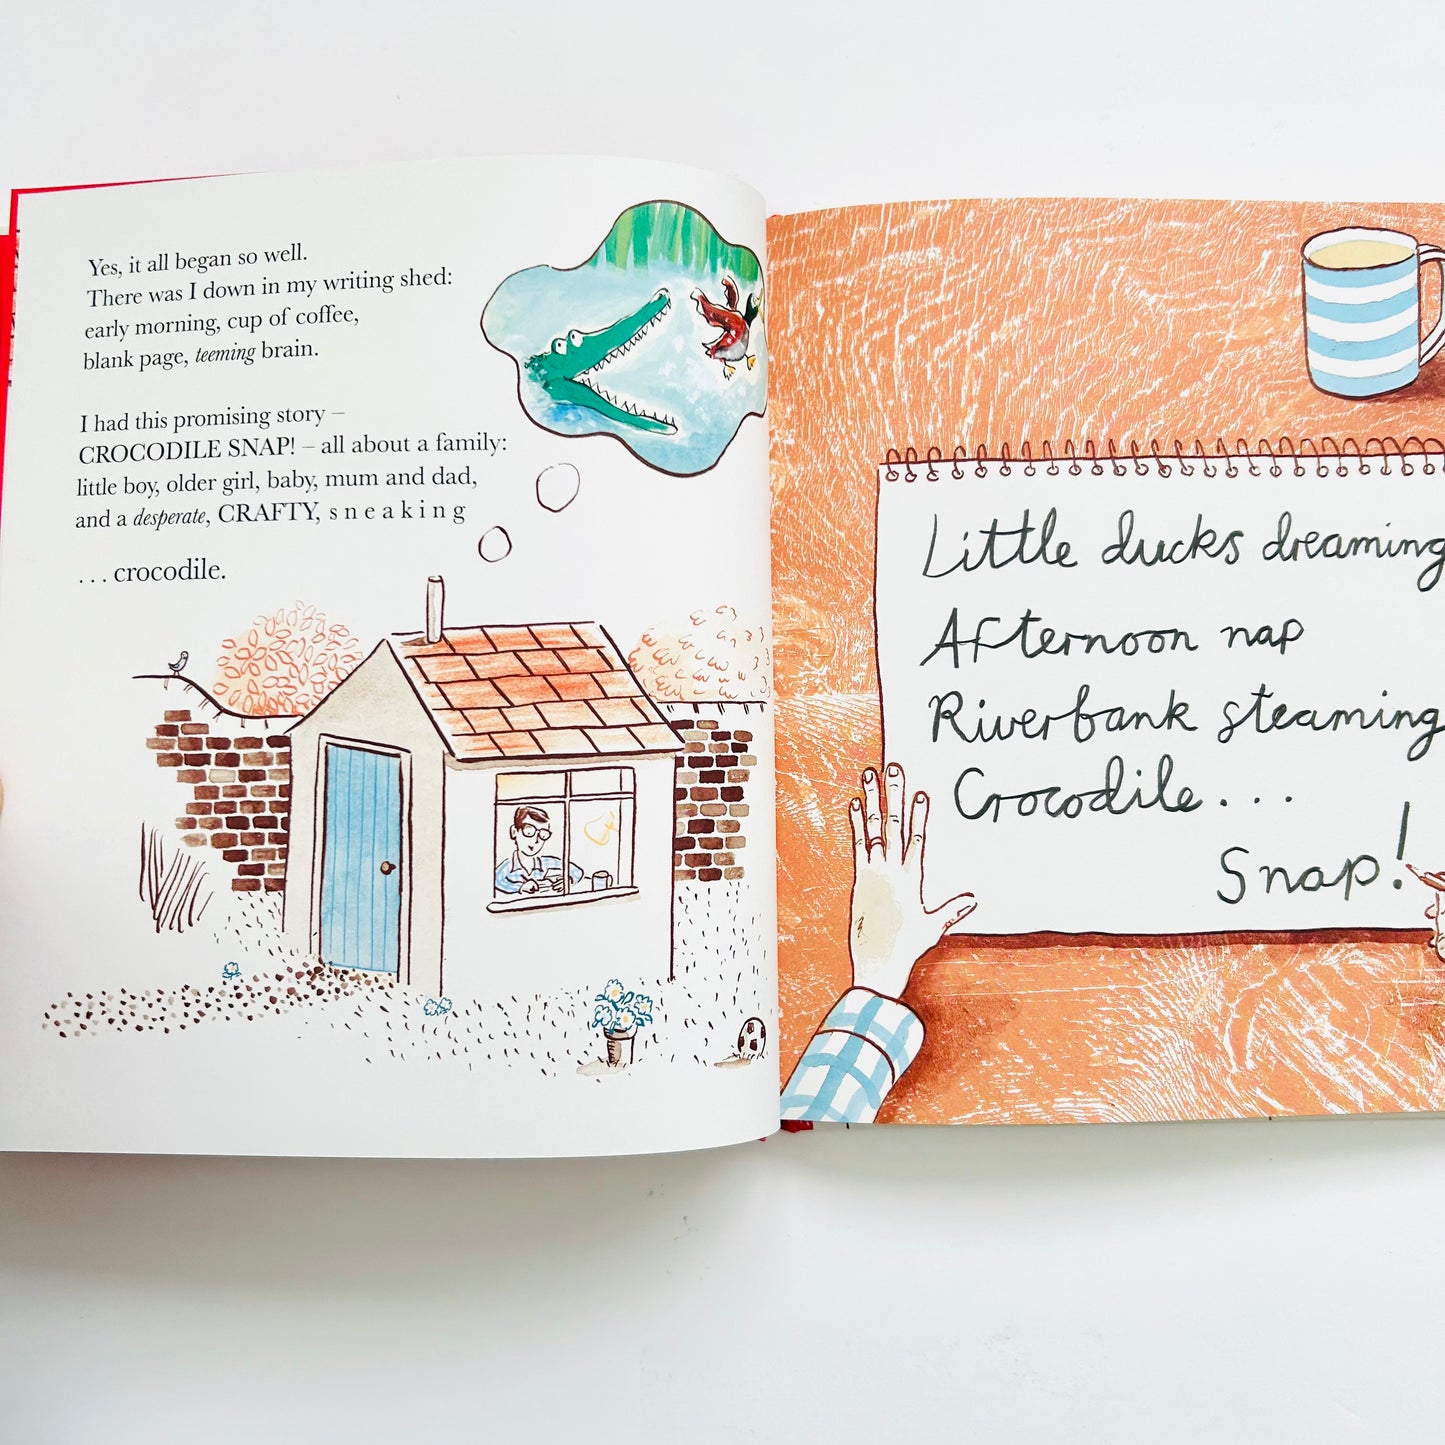 Yes, it all began so well.
There was I down in my writing shed:
early morning, cup of coffee,
blank page, teeming brain.
I had this promising story –
CROCODILE SNAP! – all about a family:
little boy, older girl, baby, mum and dad,
and a desperate, CRAFTY, s n e a k i n g
. . . crocodile.
Little ducks dreaming
Afternoon nap
Riverbank steaming
Crocodile . . .
Snap!